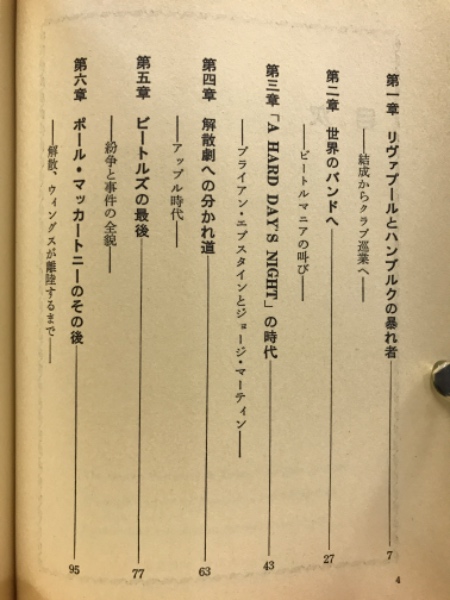 第一章 リヴァプールとハンブルクの暴れ者 7
――結成からクラブ巡業へ――
第二章 世界のバンドへ 27
――ビートルマニアの叫び――
第三章 「A HARD DAY'S NIGHT」の時代 43
――ブライアン・エプスタインとジョージ・マーティン――
第四章 解散劇への分かれ道 63
――アップル時代――
第五章 ビートルズの最後 77
――紛争と事件の全貌――
第六章 ポール・マッカートニーのその後 95
――解散、ウィングスが離陸するまで――
4